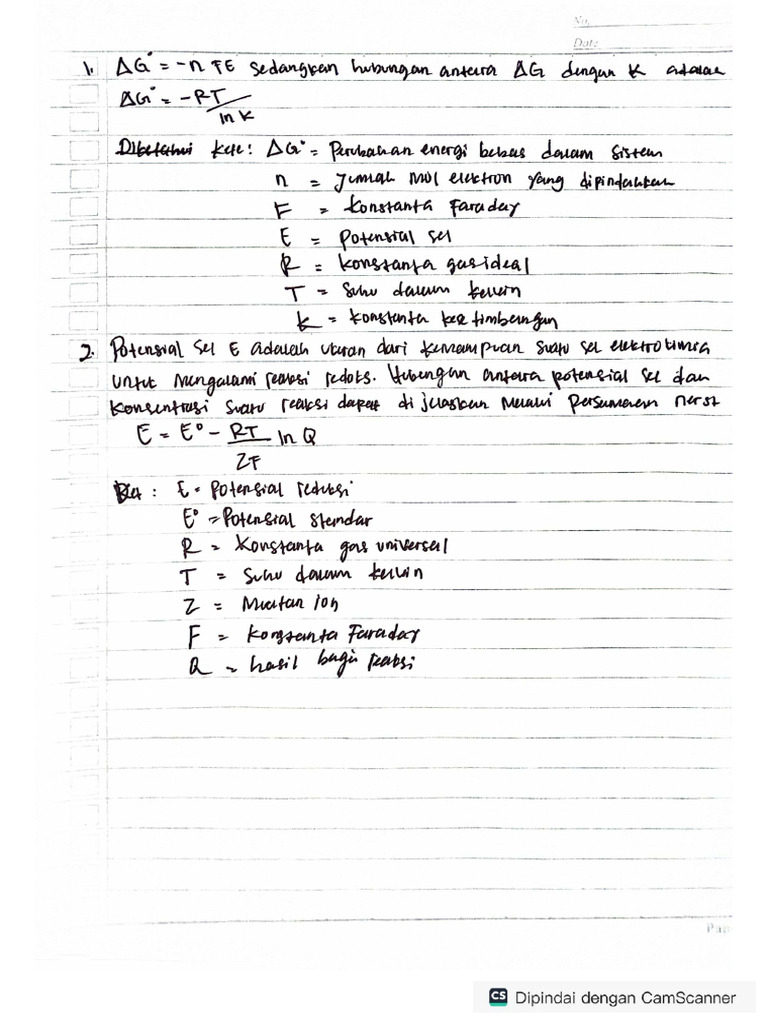 No.
Date:
1. ΔG° = -n FE sedangkan hubungan antara ΔG dengan K adalah
ΔG° = -RT/ln K
Diketahui Kete: ΔG° = Perubahan energi bebas dalam sistem
n = Jumlah mol elektron yang dipindahkan
F = Konstanta Faraday
E = Potensial sel
R = Konstanta gas ideal
T = Suhu dalam kelvin
K = Konstanta kesetimbangan
2. Potensial sel E adalah ukuran dari kemampuan suatu sel elektrokimia
untuk mengalami reaksi redoks. Hubungan antara potensial sel dan
Konsentrasi suatu reaksi dapat di jelaskan melalui persamaan nerst
E = E° - RT/ZF ln Q
Ket : E = Potensial reduksi
E° = Potensial standar
R = Konstanta gas universal
T = Suhu dalam kelvin
Z = Muatan ion
F = Konstanta Faraday
Q = hasil bagi reaksi
CS Dipindai dengan CamScanner